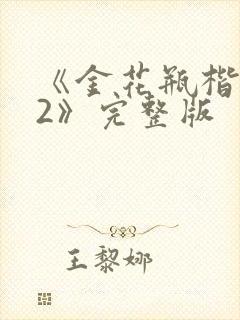 《金花瓶楷
2》完整版
王黎娜